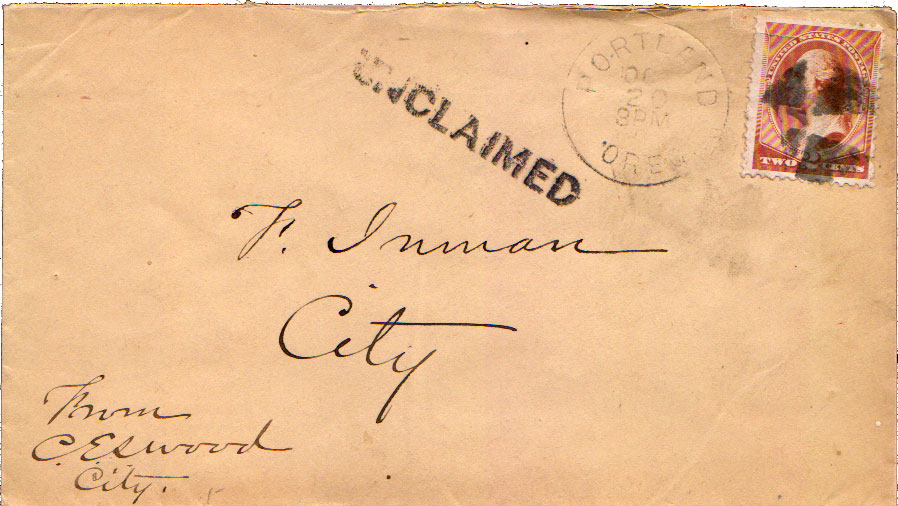 UNCLAIMED
PORTLAND
20
8PM
ORE
UNITED STATES POSTAGE
TWO 2 CENTS
F. Inman
City
From
City.